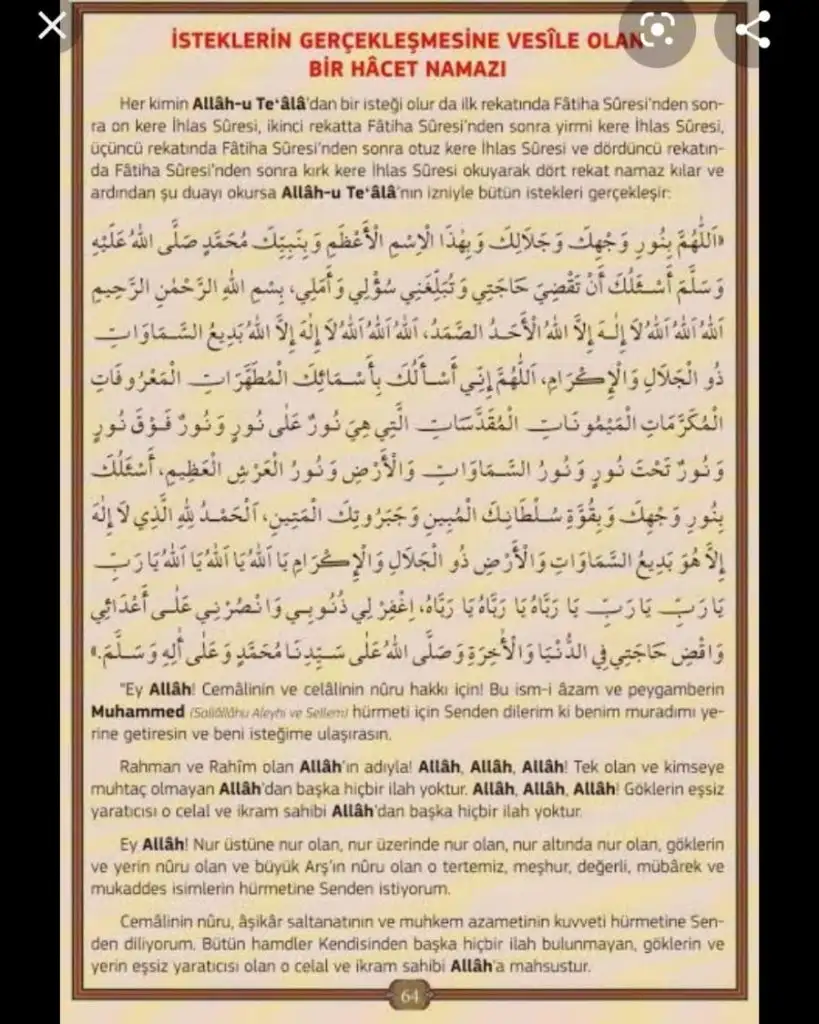 İSTEKLERİN GERÇEKLEŞMESİNE VESÎLE OLAN
BİR HÂCET NAMAZI
Her kimin Allâh-u Te‘âlâ’dan bir isteği olur da ilk rekatında Fâtiha Sûresi’nden son-
ra on kere İhlas Sûresi, ikinci rekatta Fâtiha Sûresi’nden sonra yirmi kere İhlas Sûresi,
üçüncü rekatında Fâtiha Sûresi’nden sonra otuz kere İhlas Sûresi ve dördüncü rekatın-
da Fâtiha Sûresi’nden sonra kırk kere İhlas Sûresi okuyarak dört rekat namaz kılar ve
ardından şu duayı okursa Allâh-u Te‘âlâ’nın izniyle bütün istekleri gerçekleşir:
«اَللّٰهُمَّ بِنُورِ وَجْهِكَ وَجَلَالِكَ وَبِهٰذَا الْاِسْمِ الْأَعْظَمِ وَبِنَبِيِّكَ مُحَمَّدٍ صَلَّى اللهُ عَلَيْهِ
وَسَلَّمَ أَسْئَلُكَ أَنْ تَقْضِيَ حَاجَتِي وَتُبَلِّغَنِي سُؤْلِي وَأَمَلِي، بِسْمِ اللهِ الرَّحْمٰنِ الرَّحِيمِ
اَللهُ اَللهُ اَللهُ لَا إِلٰهَ إِلَّا اللهُ الْأَحَدُ الصَّمَدُ، اَللهُ اَللهُ اَللهُ لَا إِلٰهَ إِلَّا اللهُ بَدِيعُ السَّمَاوَاتِ
ذُو الْجَلَالِ وَالْإِكْرَامِ، اَللّٰهُمَّ إِنِّي أَسْأَلُكَ بِأَسْمَائِكَ الْمُطَهَّرَاتِ الْمَعْرُوفَاتِ
الْمُكَرَّمَاتِ الْمَيْمُونَاتِ الْمُقَدَّسَاتِ الَّتِي هِيَ نُورٌ عَلٰى نُورٍ وَنُورٌ فَوْقَ نُورٍ
وَنُورٌ تَحْتَ نُورٍ وَنُورُ السَّمَاوَاتِ وَالْأَرْضِ وَنُورُ الْعَرْشِ الْعَظِيمِ، أَسْئَلُكَ
بِنُورِ وَجْهِكَ وَبِقُوَّةِ سُلْطَانِكَ الْمُبِينِ وَجَبَرُوتِكَ الْمَتِينِ، اَلْحَمْدُ لِلّٰهِ الَّذِي لَا إِلٰهَ
إِلَّا هُوَ بَدِيعُ السَّمَاوَاتِ وَالْأَرْضِ ذُو الْجَلَالِ وَالْإِكْرَامِ يَا اَللهُ يَا اَللهُ يَا اَللهُ يَا رَبِّ
يَا رَبِّ يَا رَبِّ يَا رَبَّاهُ يَا رَبَّاهُ يَا رَبَّاهُ، اِغْفِرْ لِي ذُنُوبِي وَانْصُرْنِي عَلٰى أَعْدَائِي
وَاقْضِ حَاجَتِي فِي الدُّنْيَا وَالْأٰخِرَةِ وَصَلَّى اللهُ عَلٰى سَيِّدِنَا مُحَمَّدٍ وَعَلٰى أٰلِهِ وَسَلَّمَ.»
“Ey Allâh! Cemâlinin ve celâlinin nûru hakkı için! Bu ism-i âzam ve peygamberin
Muhammed (Sallâllâhu Aleyhi ve Sellem) hürmeti için Senden dilerim ki benim muradımı ye-
rine getiresin ve beni isteğime ulaşırasın.
Rahman ve Rahîm olan Allâh’ın adıyla! Allâh, Allâh, Allâh! Tek olan ve kimseye
muhtaç olmayan Allâh’dan başka hiçbir ilah yoktur. Allâh, Allâh, Allâh! Göklerin eşsiz
yaratıcısı o celal ve ikram sahibi Allâh’dan başka hiçbir ilah yoktur.
Ey Allâh! Nur üstüne nur olan, nur üzerinde nur olan, nur altında nur olan, göklerin
ve yerin nûru olan ve büyük Arş’ın nûru olan o tertemiz, meşhur, değerli, mübârek ve
mukaddes isimlerin hürmetine Senden istiyorum.
Cemâlinin nûru, âşikâr saltanatının ve muhkem azametinin kuvveti hürmetine Sen-
den diliyorum. Bütün hamdler Kendisinden başka hiçbir ilah bulunmayan, göklerin ve
yerin eşsiz yaratıcısı olan o celal ve ikram sahibi Allâh’a mahsustur.
64